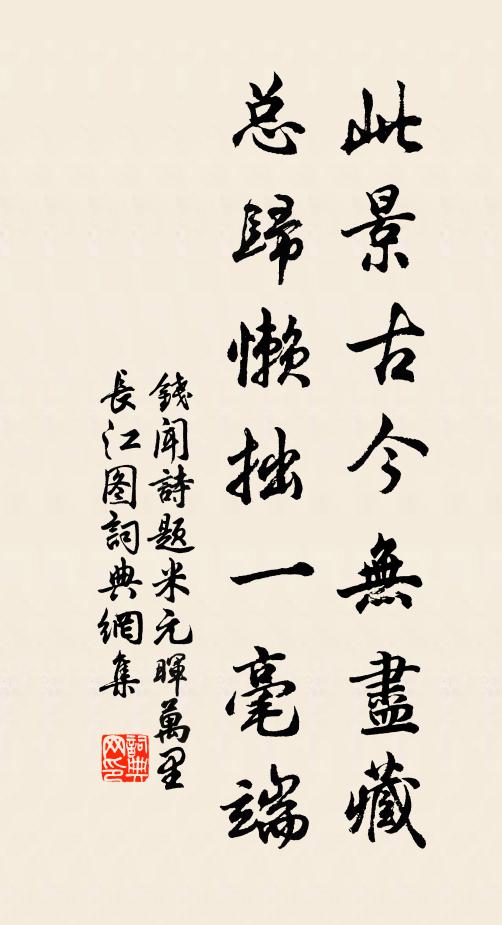 此景古今無盡藏
总歸懒拙一毫端
錢闻詩题米元暉萬里
長江图詞典網集
詞典网印